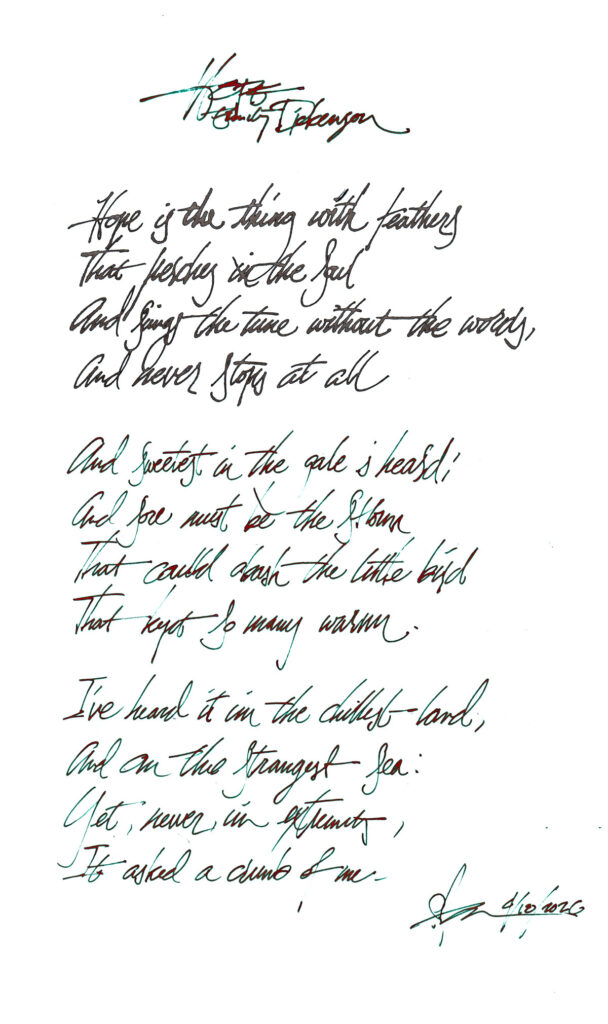 Hope
Emily Dickenson
Hope is the thing with feathers
That perches in the Soul
And sings the tune without the words,
And never stops at all
And sweetest in the gale is heard;
And sore must be the storm
That could the little bird
That kept so many warm.
I've heard it in the chillest land,
And on the strangest Sea:
Yet, never, in extremity,
It asked a crumb of me-